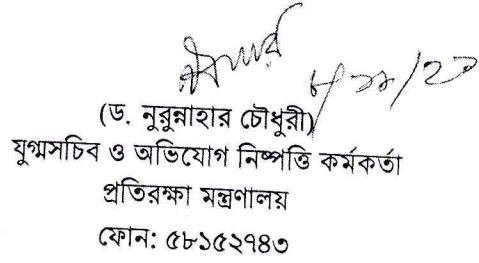 (ড. নুরুন্নাহার চৌধুরী)
যুগ্মসচিব ও অভিযোগ নিষ্পত্তি কর্মকর্তা
প্রতিরক্ষা মন্ত্রণালয়
ফোন: ৫৮১৫২৭৪৩